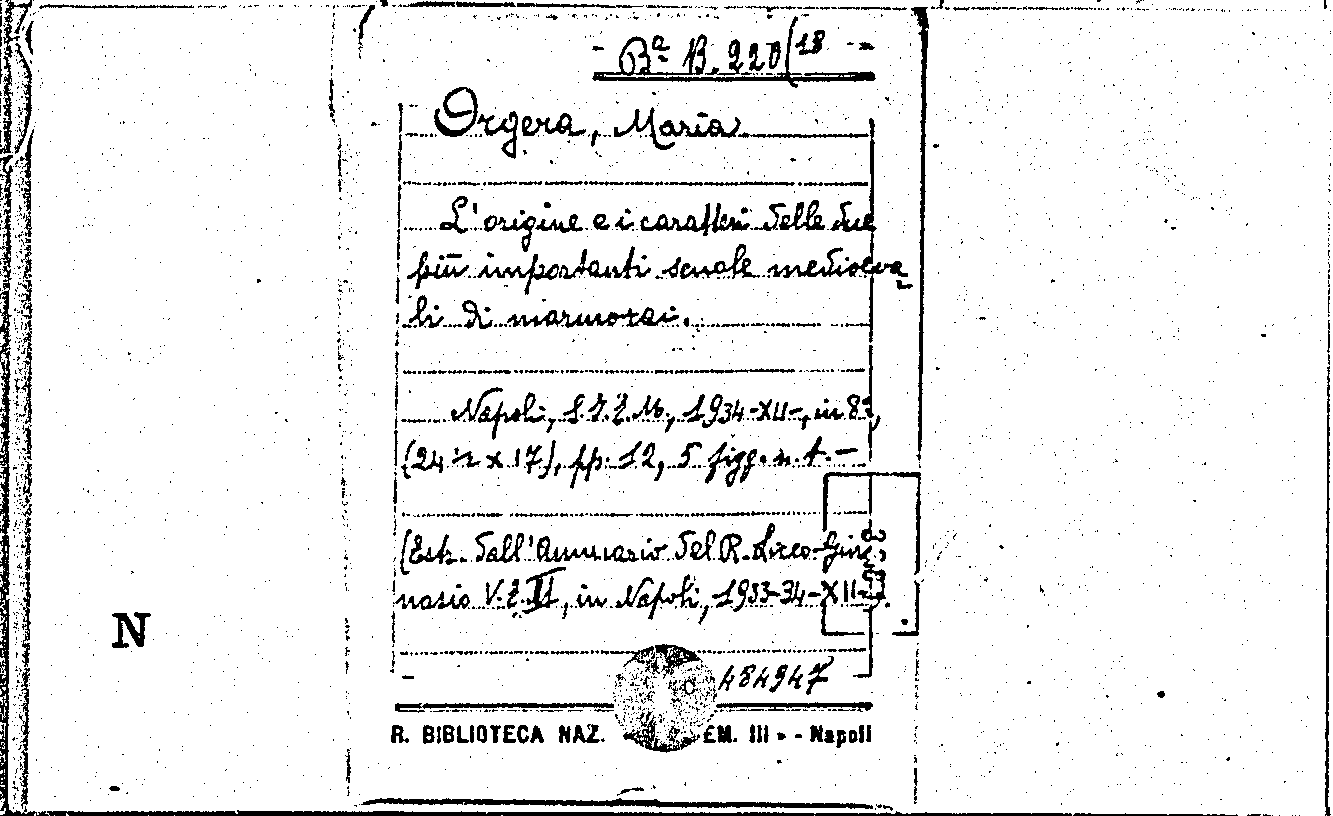 - Bª B. 220/18 -
Orgera, Maria
L'origine e i caratteri delle due
più importanti scuole medioeva
li di marmorai.
Napoli, S.I.E.M., 1934-XII-, in 8º,
(24 ½ x 17), pp. 12, 5 figg. n. t. -
(Estr. dall'Annuario del R. Liceo-Gin-
nasio V. E. II, in Napoli, 1933-34-XII-
484947
R. BIBLIOTECA NAZ. EM. III » - Napoli
N